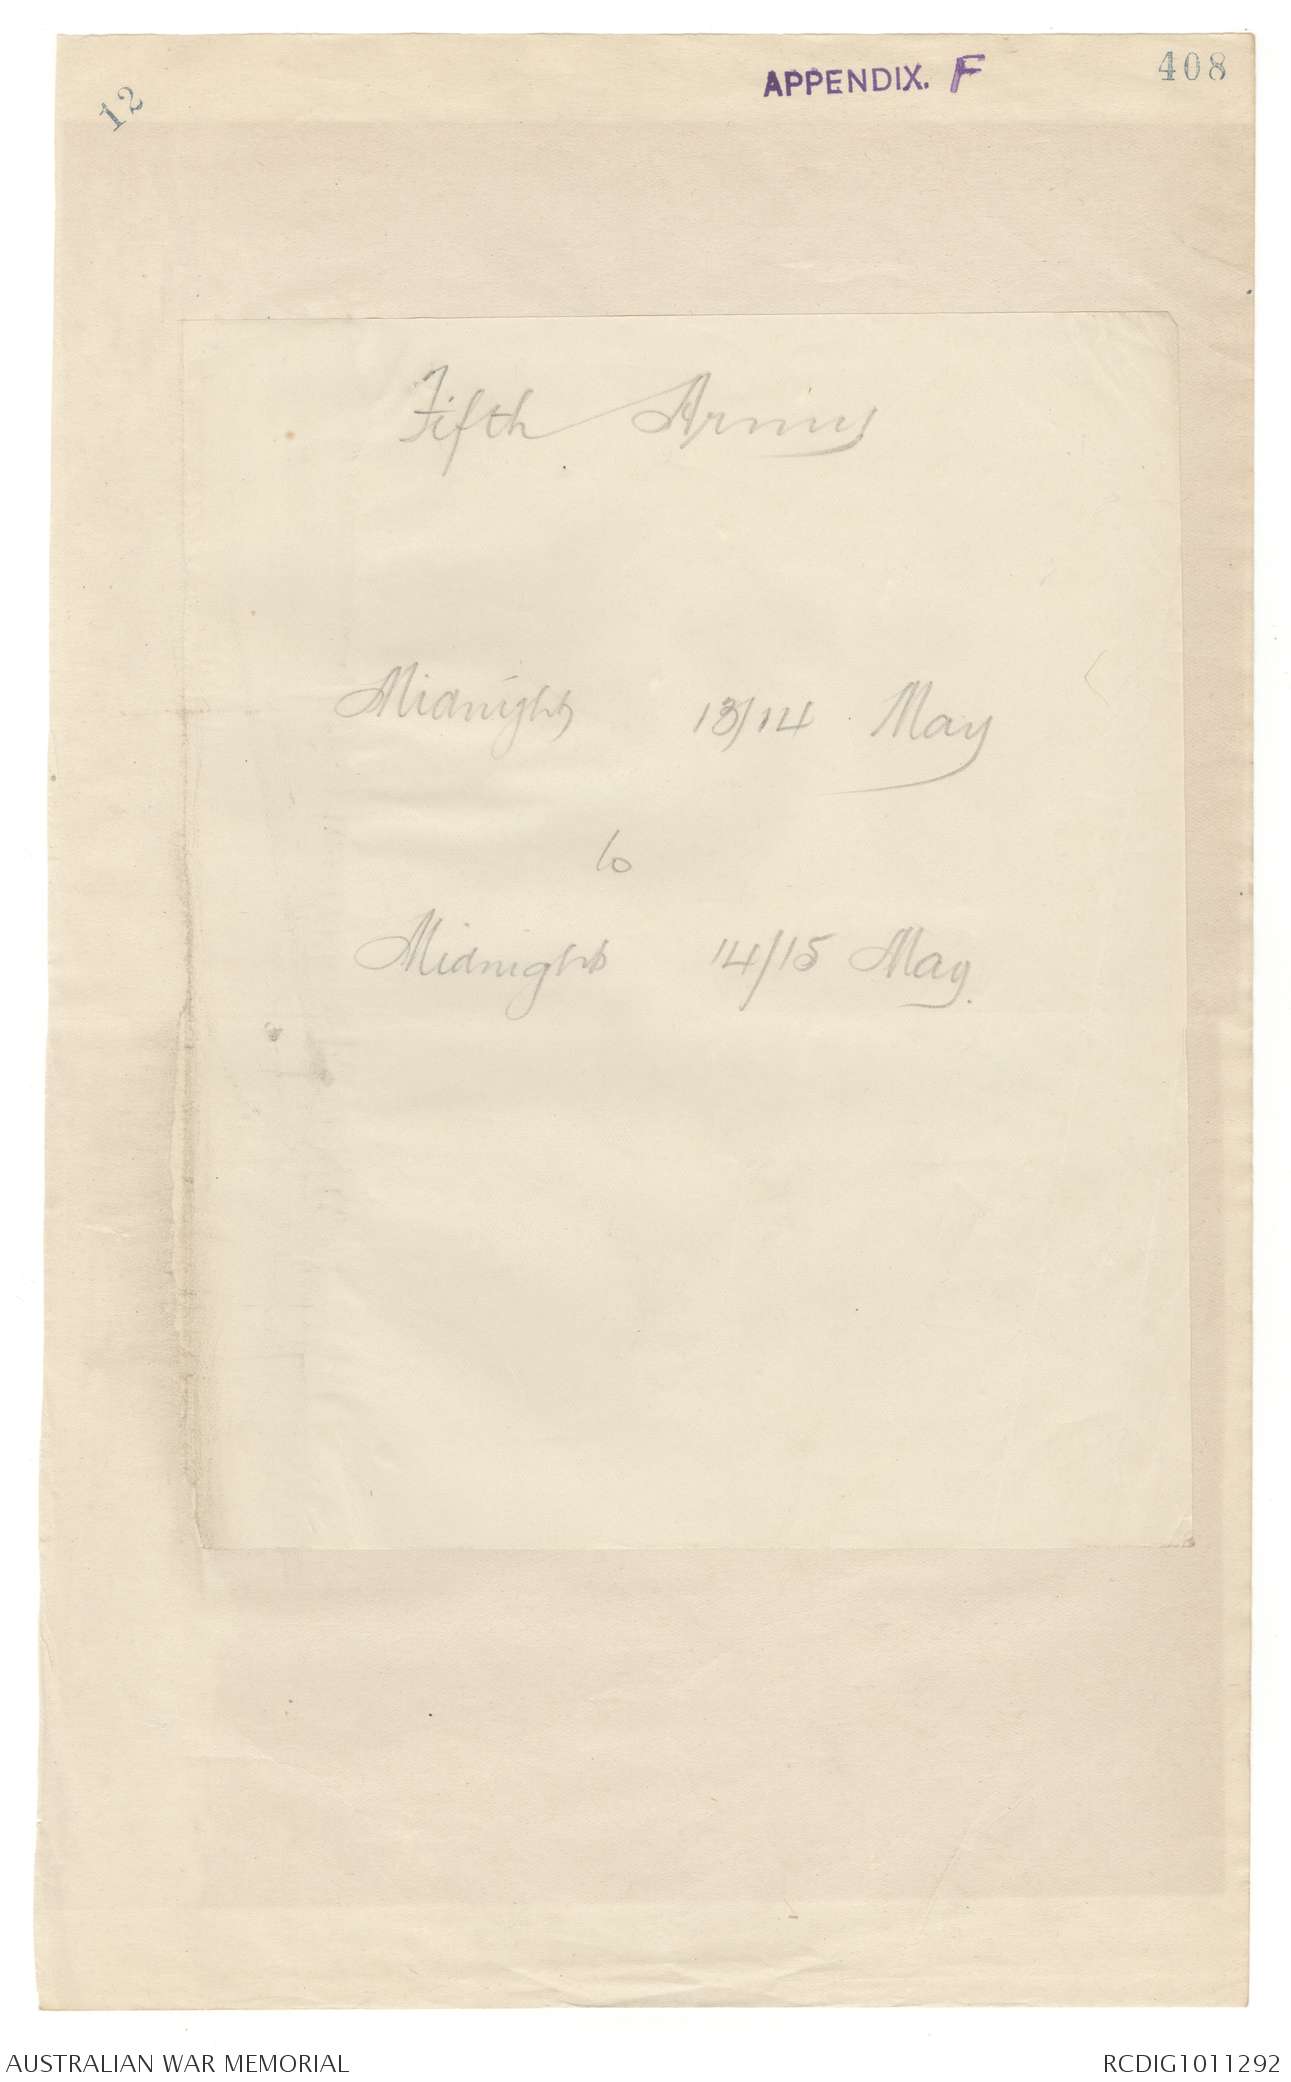 12
APPENDIX. F
408
Fifth Army
Midnight 13/14 May
to
Midnight 14/15 May.
AUSTRALIAN WAR MEMORIAL
RCDIG1011292